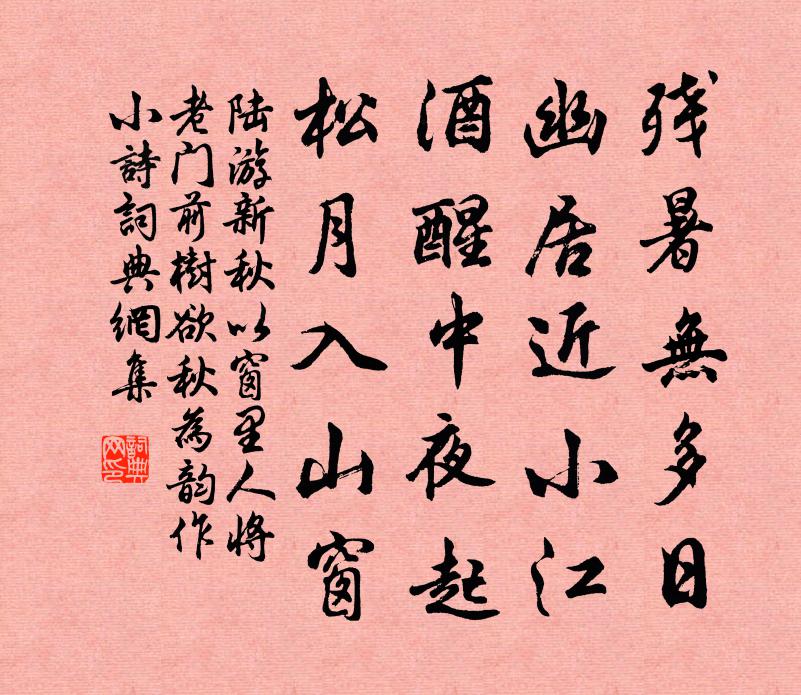 残暑無多日
幽居近小江
酒醒中夜起
松月入山窗
陆游新秋以窗里人将
老门前樹欲秋為韵作
小詩詞典網集
詞典
网印